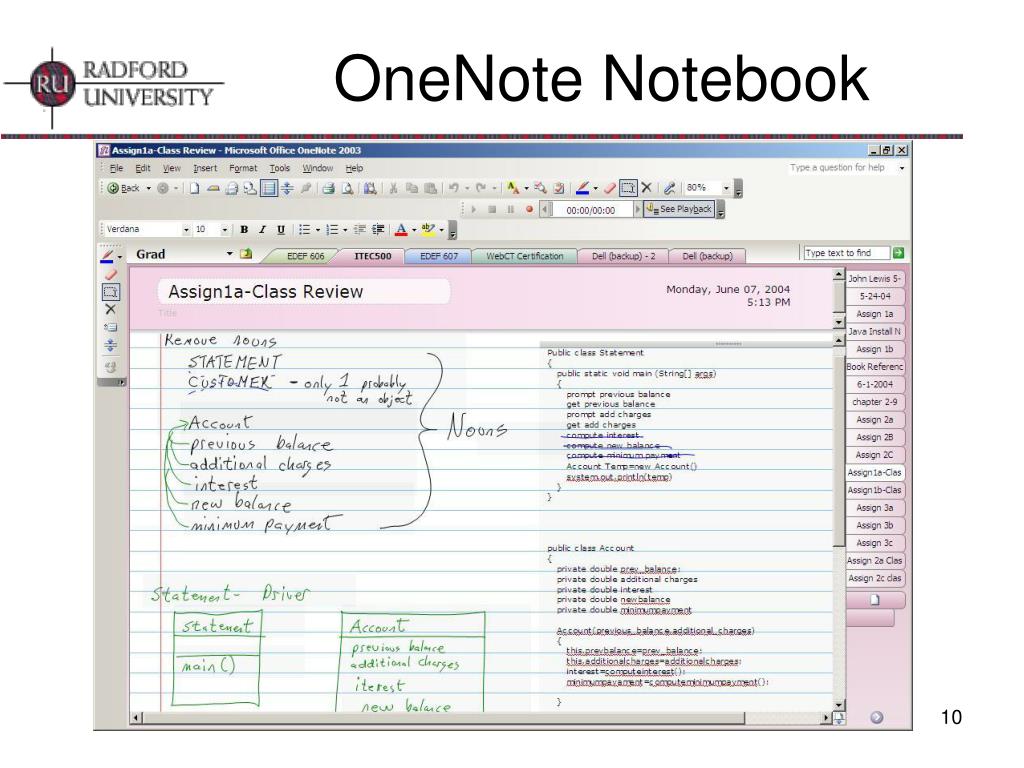 RADFORD
UNIVERSITY
OneNote Notebook
Assign1a-Class Review - Microsoft Office OneNote 2003
File Edit View Insert Format Tools Window Help
Type a question for help
Back
80%
00:00/00:00
See Playback
Verdana
10
B I U
Grad
EDEF 606
ITEC500
EDEF 607
WebCT Certification
Dell (backup) - 2
Dell (backup)
Type text to find
Assign1a-Class Review
Title
Monday, June 07, 2004
5:13 PM
Remove nouns
STATEMENT
CUSTOMER - only 1 probably
not an object
Account
previous balance
additional charges
interest
new balance
minimum payment
Nouns
Statement - Driver
Statement
main()
Account
previous balance
additional charges
iterest
new balance
Public class Statement
{
public static void main (String[] args)
{
prompt previous balance
get previous balance
prompt add charges
get add charges
compute interest
compute new balance
compute minimum payment
Account Temp=new Account()
system.out.println(temp)
}
}
public class Account
{
private double prev_balance;
private double additional charges
private double interest
private double newbalance
private double minimumpayment
Account(previous_balance,additional_charges)
{
this.prevbalance=prev_balance;
this.additionalcharges=additionalcharges;
interest=computeinterest();
minimumpayament=computeminimumpayment();
}
John Lewis 5-
5-24-04
Assign 1a
Java Install N
Assign 1b
Book Referenc
6-1-2004
chapter 2-9
Assign 2a
Assign 2B
Assign 2C
Assign1a-Clas
Assign1b-Clas
Assign 3a
Assign 3b
Assign 3c
Assign 2a Clas
Assign 2c clas
10